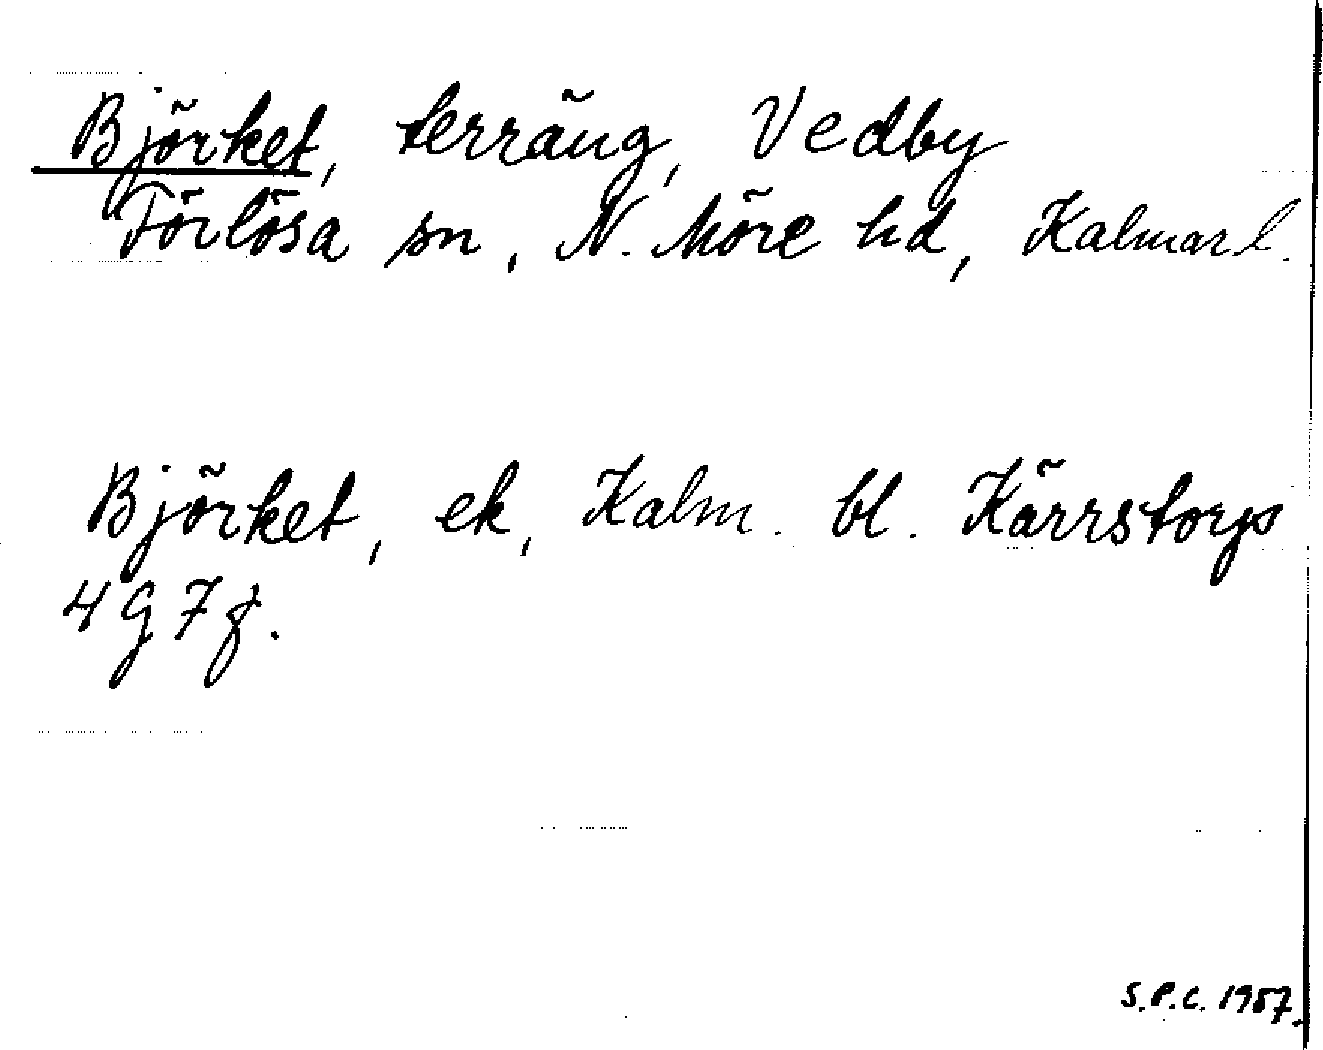 Björket, terräng, Vedby
Förlösa sn, N. Möre hd, Kalmar l.
Björket, ek, Kalm. bl. Kärrstorp
4G7f.
S.P.C. 1957.